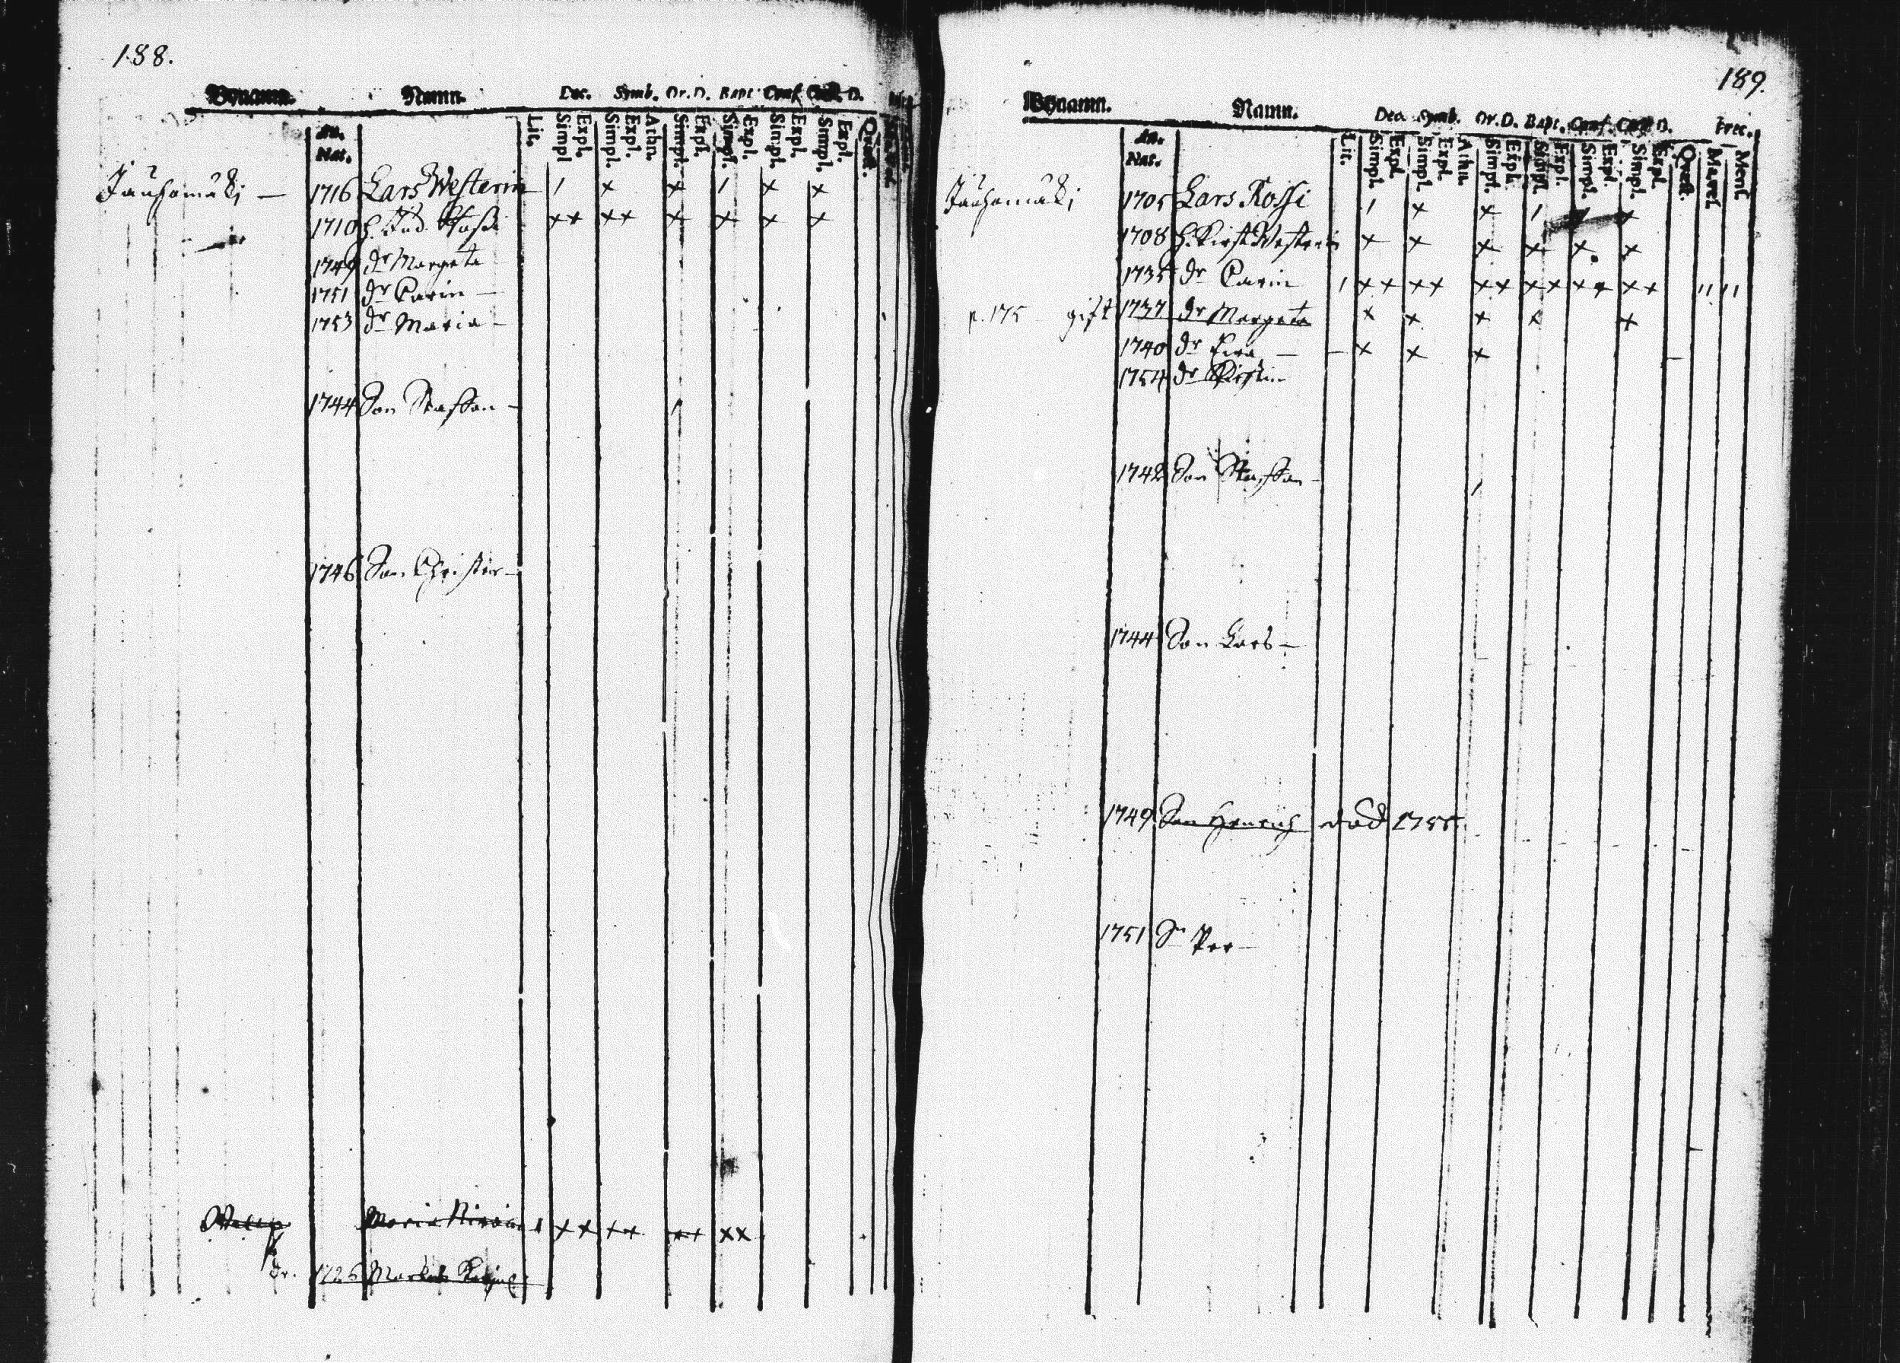 188.
Bynamn. Namn. Dec. Symb. Or. D. Bapt. Conf. D.
An. Nat. Lit. Simpl Expl. Simpl. Expl. Athn. Simpl. Expl. Simpl. Expl. Simpl. Expl. Simpl. Expl. Quæst.
Jauhomäki — 1716 Lars Westerin 1 x x 1 x x
1710 h. xx xx x x x x
1749 dr Margeta
1751 dr Carin —
1753 dr Maria —
1744 Son Staffan —
1746 Son Christer —
Maria xx xx xx xx
dr. 1726
189.
Bynamn. Namn. Dec. Symb. Or. D. Bapt. Conf. D. Frec.
An. Nat. Lit. Simpl. Expl. Simpl. Expl. Athn. Simpl. Expl. Simpl. Expl. Simpl. Expl. Simpl. Expl. Quæst.
Jauhomäki 1705 Lars Rossi 1 x x 1 x
1708 h. Kirst. Westerin x x x x x x
1735 dr Carin 1 xx xx xx xx xx xx
p. 175 gift 1737 dr Margeta x x x x x
1740 dr — x x x
1754 dr Kirstin
1742 Son Staffan —
1744 Son Lars —
1749 Son Henrich död
1751 Sn Per —